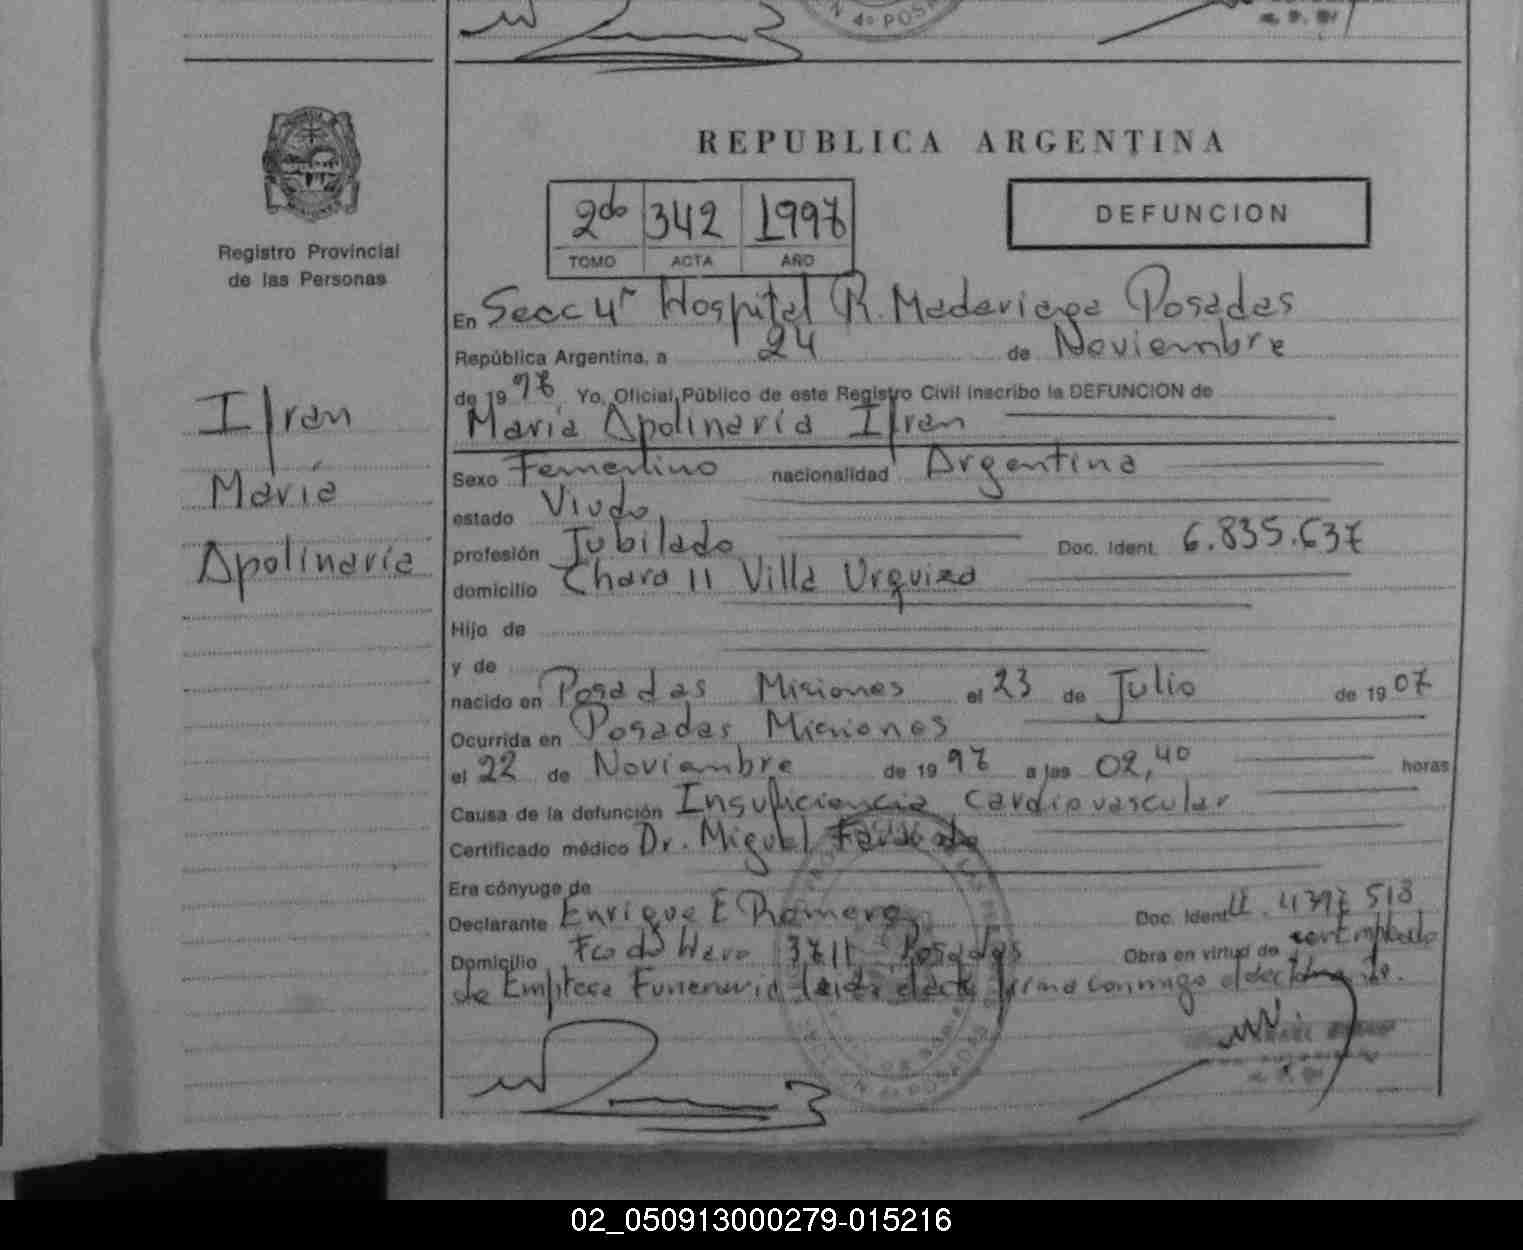 REPUBLICA ARGENTINA
2do 342 1997
TOMO ACTA AÑO
DEFUNCION
Registro Provincial
de las Personas
Ifran
María
Apolinaria
En Secc 4ª Hospital R. Madariaga Posadas
República Argentina, a 24 de Noviembre
de 1997 Yo, Oficial Público de este Registro Civil inscribo la DEFUNCION de
María Apolinaria Ifran
Sexo Femenino nacionalidad Argentina
estado Viudo
profesión Jubilado Doc. Ident. 6.835.637
domicilio Chara 11 Villa Urquiza
Hijo de
y de
nacido en Posadas Misiones el 23 de Julio de 1907
Ocurrida en Posadas Misiones
el 22 de Noviembre de 1997 a las 02,40 horas
Causa de la defunción Insuficiencia cardiovascular
Certificado médico Dr. Miguel
Era cónyuge de
Declarante Enrique E Romero Doc. Ident 4397513
Domicilio Fco de Haro 3711 Posadas Obra en virtud de ser Empleado
de Empresa Funeraria leida el acta firma conmigo el declarante.
02_050913000279-015216